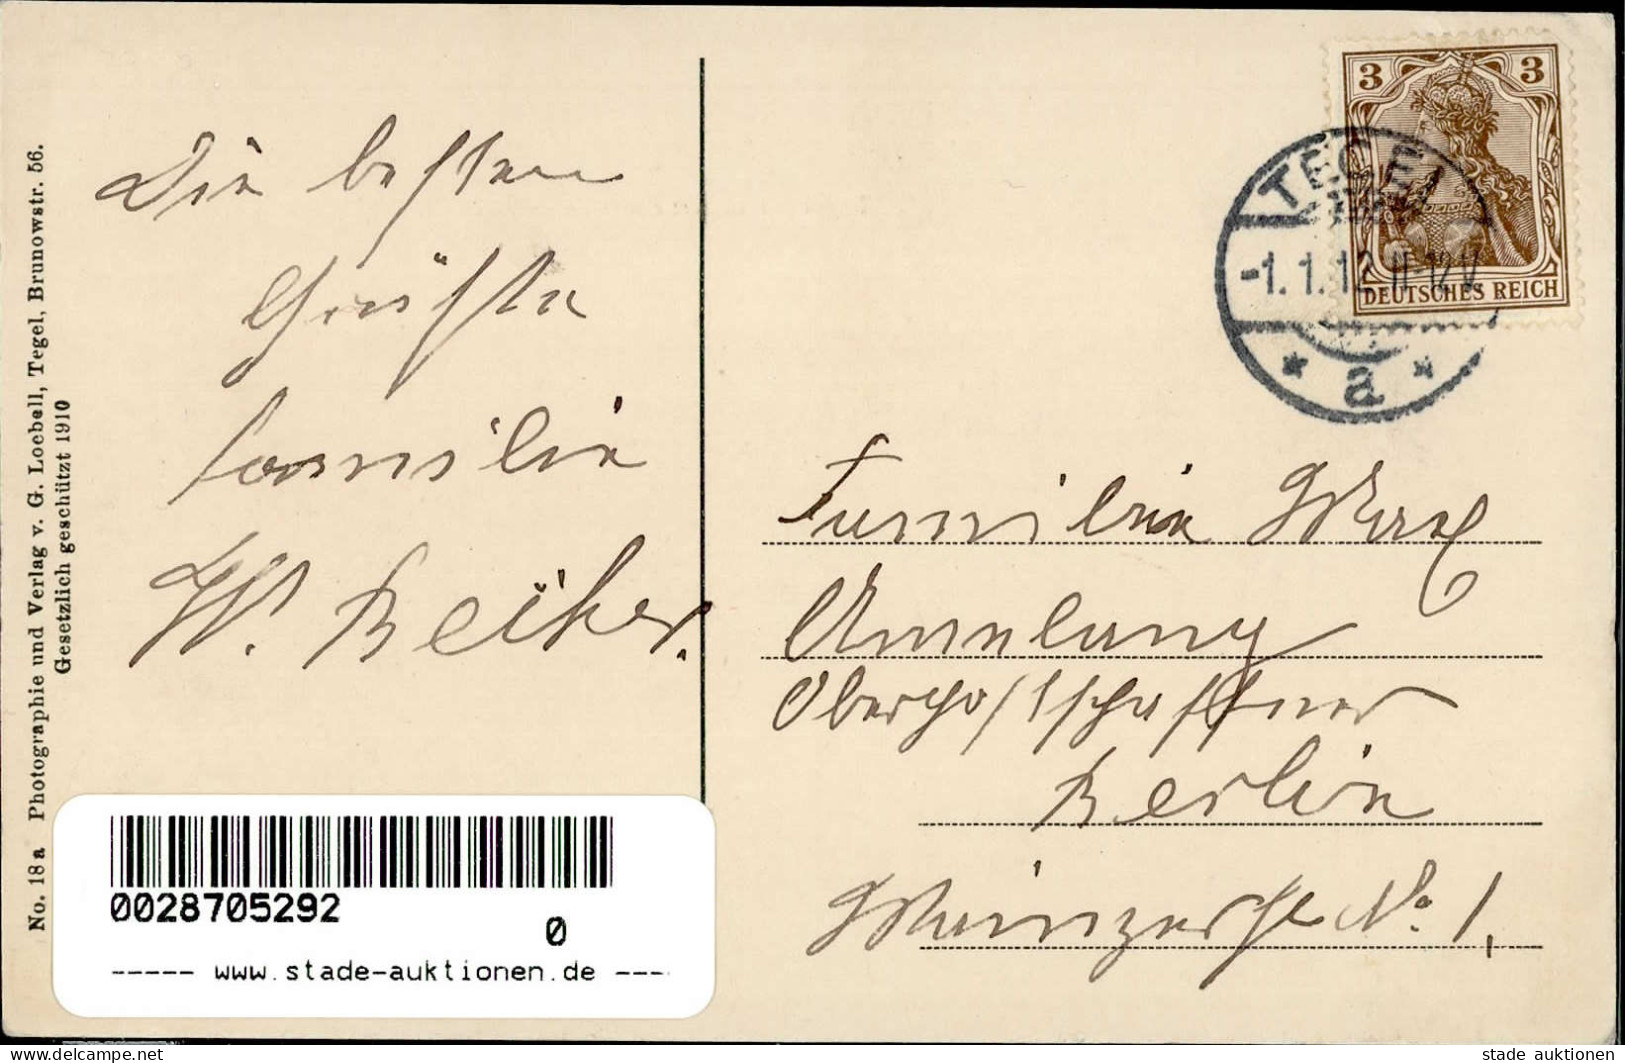 No. 18a Photographie und Verlag v. G. Loebell, Tegel, Brunowstr. 56.
Gesetzlich geschützt 1910
Die besten
Grüße
Familie
W. Becker.
3 3
DEUTSCHES REICH
TEGEL
-1.1.12 11-12V
* a *
Familie Max
Amelang
Oberpostschaffner
Berlin
Mainzerstr No 1.
0028705292
0
----- www.stade-auktionen.de ---
delcampe.net
stade auktionen